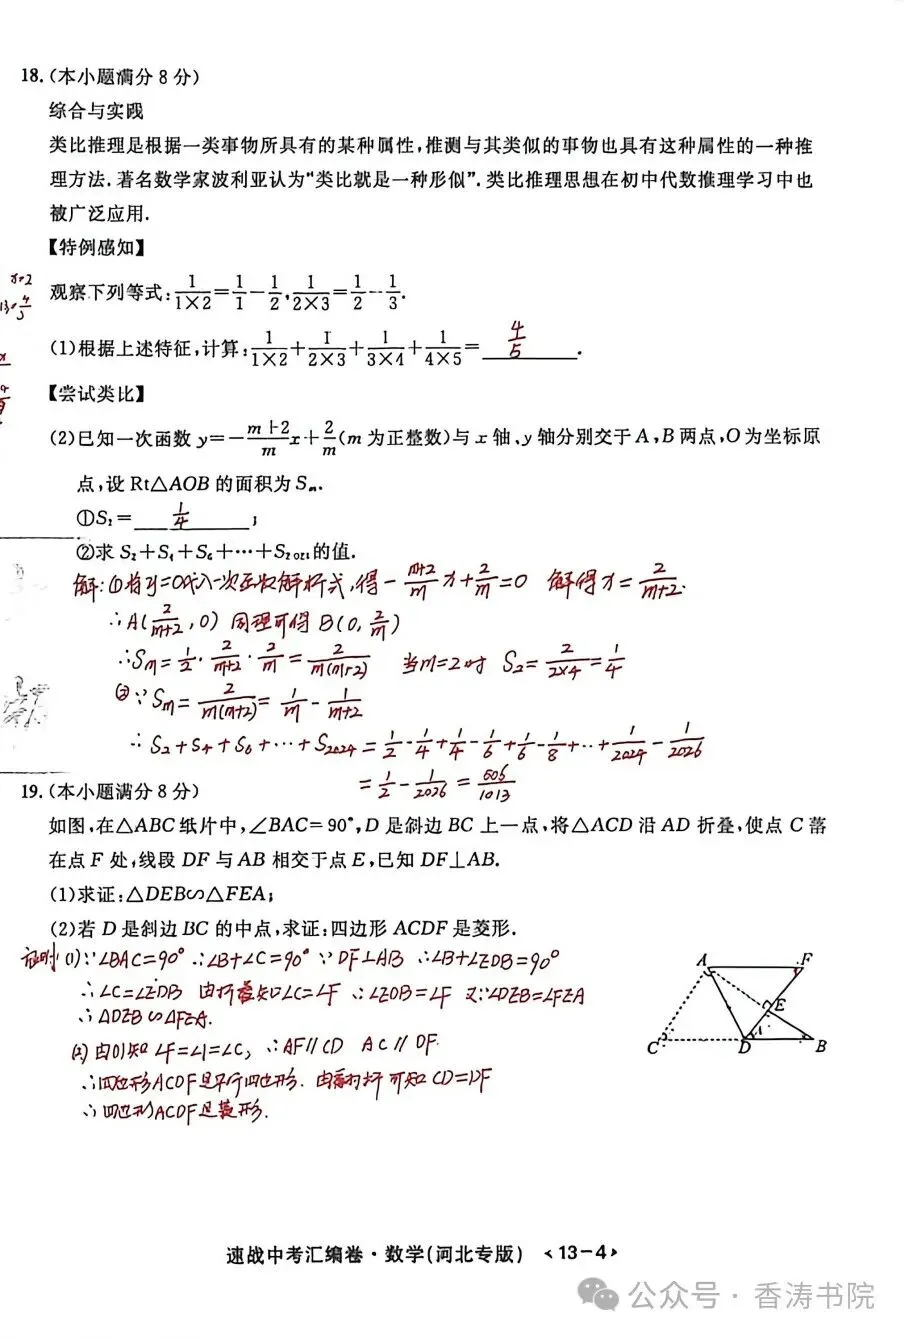 18.(本小题满分8分)
综合与实践
类比推理是根据一类事物所具有的某种属性,推测与其类似的事物也具有这种属性的一种推
理方法.著名数学家波利亚认为“类比就是一种形似”.类比推理思想在初中代数推理学习中也
被广泛应用.
【特例感知】
观察下列等式:1/(1×2)=1/1-1/2,1/(2×3)=1/2-1/3.
(1)根据上述特征,计算:1/(1×2)+1/(2×3)+1/(3×4)+1/(4×5)=4/5.
【尝试类比】
(2)已知一次函数y=-(m+2)/m x+2/m(m为正整数)与x轴、y轴分别交于A,B两点,O为坐标原
点,设Rt△AOB的面积为Sₘ.
①S₂=1/4;
②求S₂+S₄+S₆+⋯+S₂₀₂₄的值.
解:①将y=0代入一次函数解析式,得-(m+2)/m x+2/m=0 解得x=2/(m+2).
∴A(2/(m+2),0) 同理可得B(0,2/m)
∴Sm=1/2·2/(m+2)·2/m=2/(m(m+2)) 当m=2时 S₂=2/(2×4)=1/4
②∵Sm=2/(m(m+2))=1/m-1/(m+2)
∴S₂+S₄+S₆+⋯+S₂₀₂₄=1/2-1/4+1/4-1/6+1/6-1/8+⋯+1/2024-1/2026
=1/2-1/2026=506/1013
19.(本小题满分8分)
如图,在△ABC纸片中,∠BAC=90°,D是斜边BC上一点,将△ACD沿AD折叠,使点C落
在点F处,线段DF与AB相交于点E,已知DF⊥AB.
(1)求证:△DEB∽△FEA;
(2)若D是斜边BC的中点,求证:四边形ACDF是菱形.
证明:(1)∵∠BAC=90° ∴∠B+∠C=90° ∵DF⊥AB ∴∠B+∠EDB=90°
∴∠C=∠EDB 由折叠知∠C=∠F ∴∠EDB=∠F 又∵∠DEB=∠FEA
∴△DEB∽△FEA.
(2)由(1)知∠F=∠1=∠C, ∴AF∥CD AC∥DF.
∴四边形ACDF是平行四边形. 由翻折可知CD=DF
∴四边形ACDF是菱形.
A
F
E
C
D
1
B
速战中考汇编卷·数学(河北专版) <13-4>
公众号·香涛书院